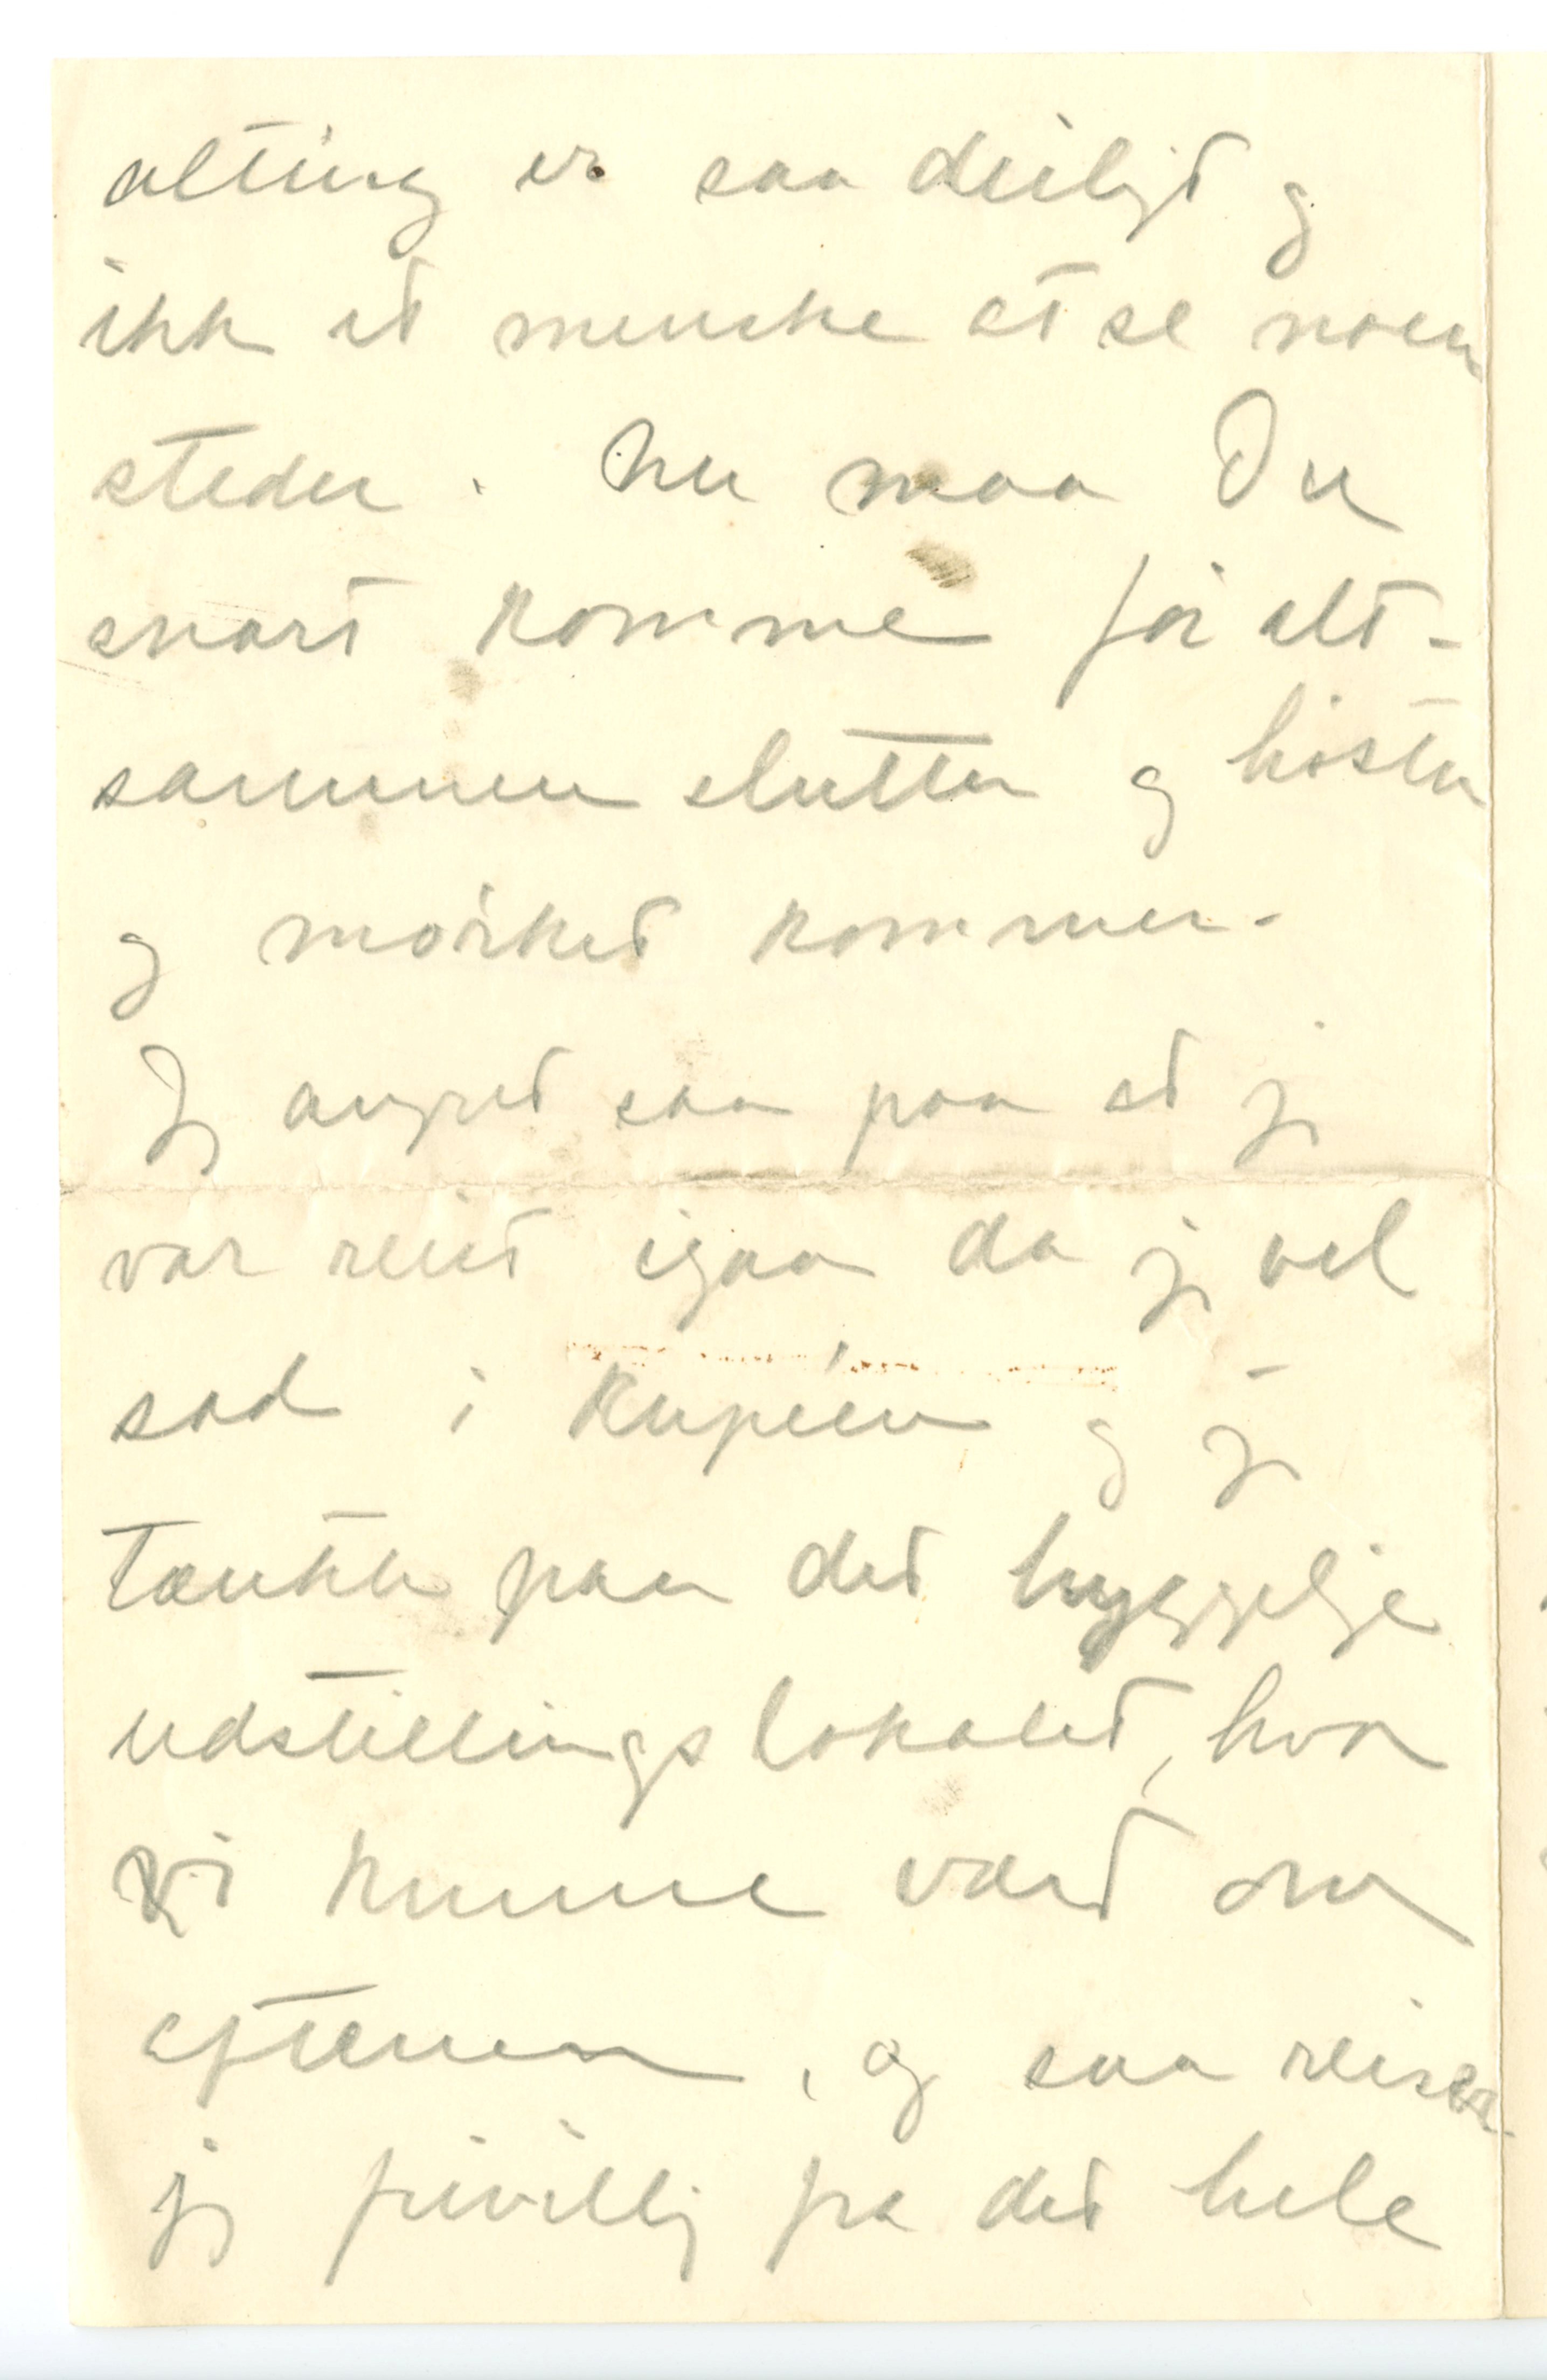 alting er saa deiligt og
ikke et menneske at se noen
steder. Nu maa Du
snart komme før alt-
sammen slutter og høsten
og mørket kommer.
Jeg angret saa paa at jeg
var reist igaar da jeg vel
sad i Kupéen og jeg
tænkte paa det hyggelige
udstillingslokalet, hvor
vi kunne været om
aftenen, og saa reiser
jeg frivillig fra det hele